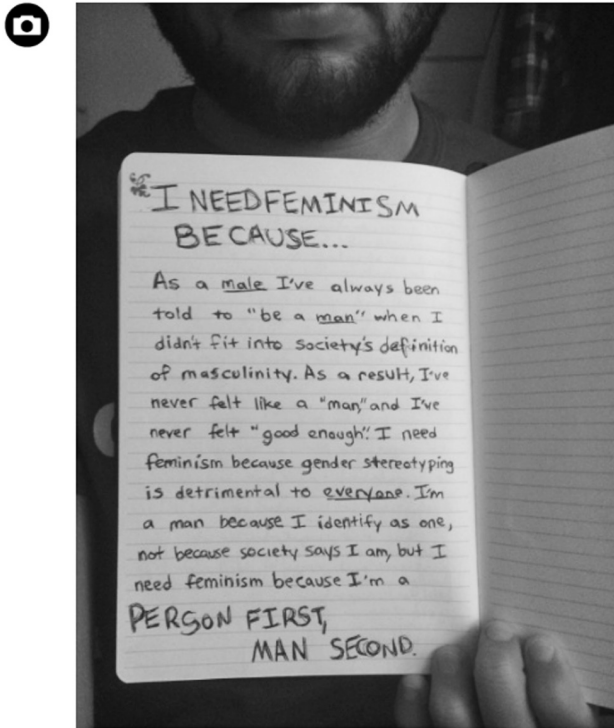 I NEED FEMINISM
BECAUSE...
As a male I've always been
told to "be a man" when I
didn't fit into society's definition
of masculinity. As a result, I've
never felt like a "man," and I've
never felt "good enough". I need
feminism because gender stereotyping
is detrimental to everyone. I'm
a man because I identify as one,
not because society says I am, but I
need feminism because I'm a
PERSON FIRST,
MAN SECOND.